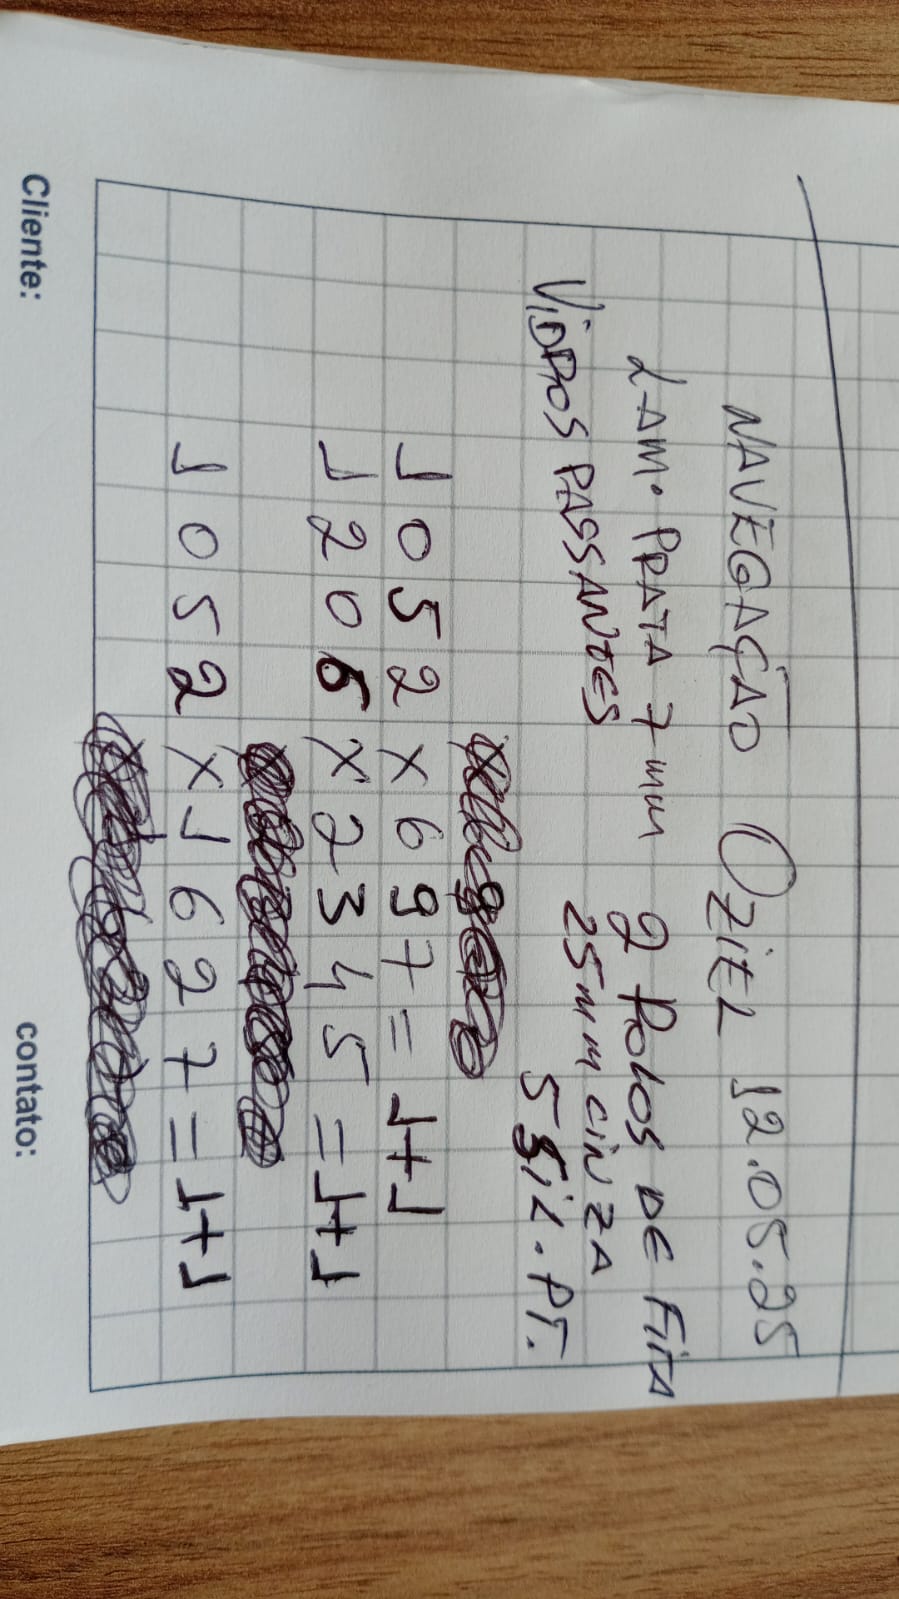 NAVEGAÇÃO OZIEL 12.05.25
LAM. PRATA 7mm 2 ROLOS DE FITA
25mm CINZA
VIDROS PASSANTES
5 SIL. PT.
1052 x 697 = 1+1
1206 x 2345 = 1+1
1052 x 1627 = 1+1
Cliente: contato: